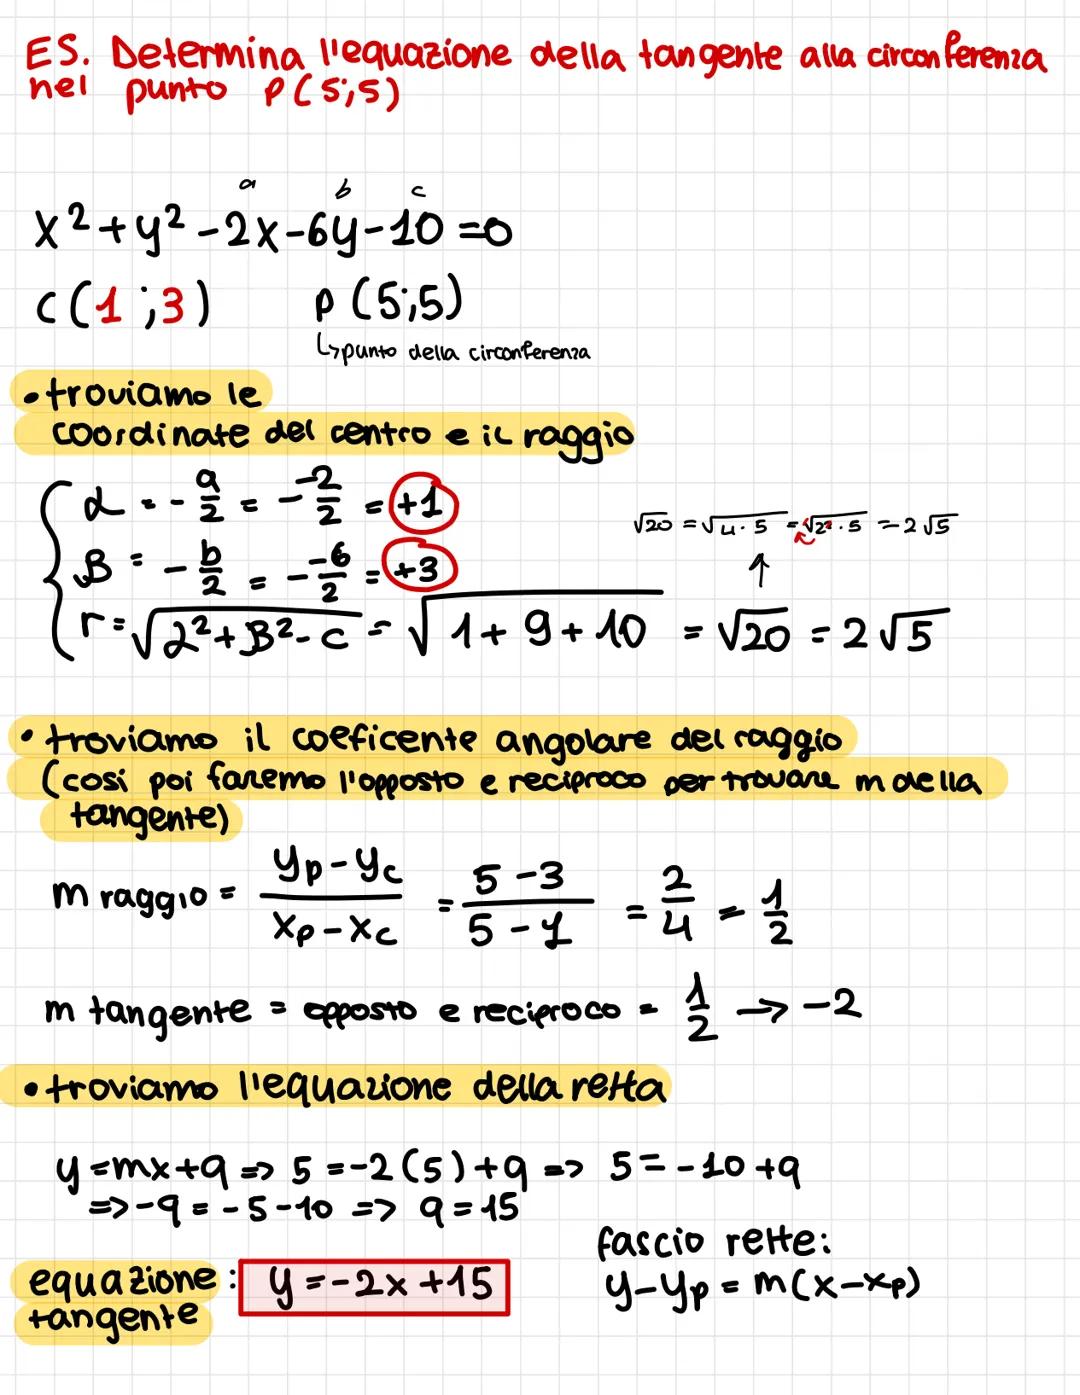 ES. Determina l'equazione della tangente alla circonferenza
nel punto P(5;5)
a b c
x²+y²-2x-6y-10=0
C(1;3) P(5;5)
↳punto della circonferenza
•troviamo le
coordinate del centro e il raggio
α = -a/2 = - -2/2 = +1
β = -b/2 = - -6/2 = +3
√20 = √4·5 = √2²·5 = 2√5
↑
r = √α²+β²-c = √1+9+10 = √20 = 2√5
• troviamo il coeficente angolare del raggio
(cosi poi faremo l'opposto e reciproco per trovare m della
tangente)
m raggio = yp-yc/xp-xc = 5-3/5-1 = 2/4 = 1/2
m tangente = opposto e reciproco = 1/2 → -2
• troviamo l'equazione della retta
y=mx+q => 5=-2(5)+q => 5=-10+q
=>-q=-5-10 => q=15
fascio rette:
equazione: y=-2x+15
y-yp = m(x-xp)
tangente